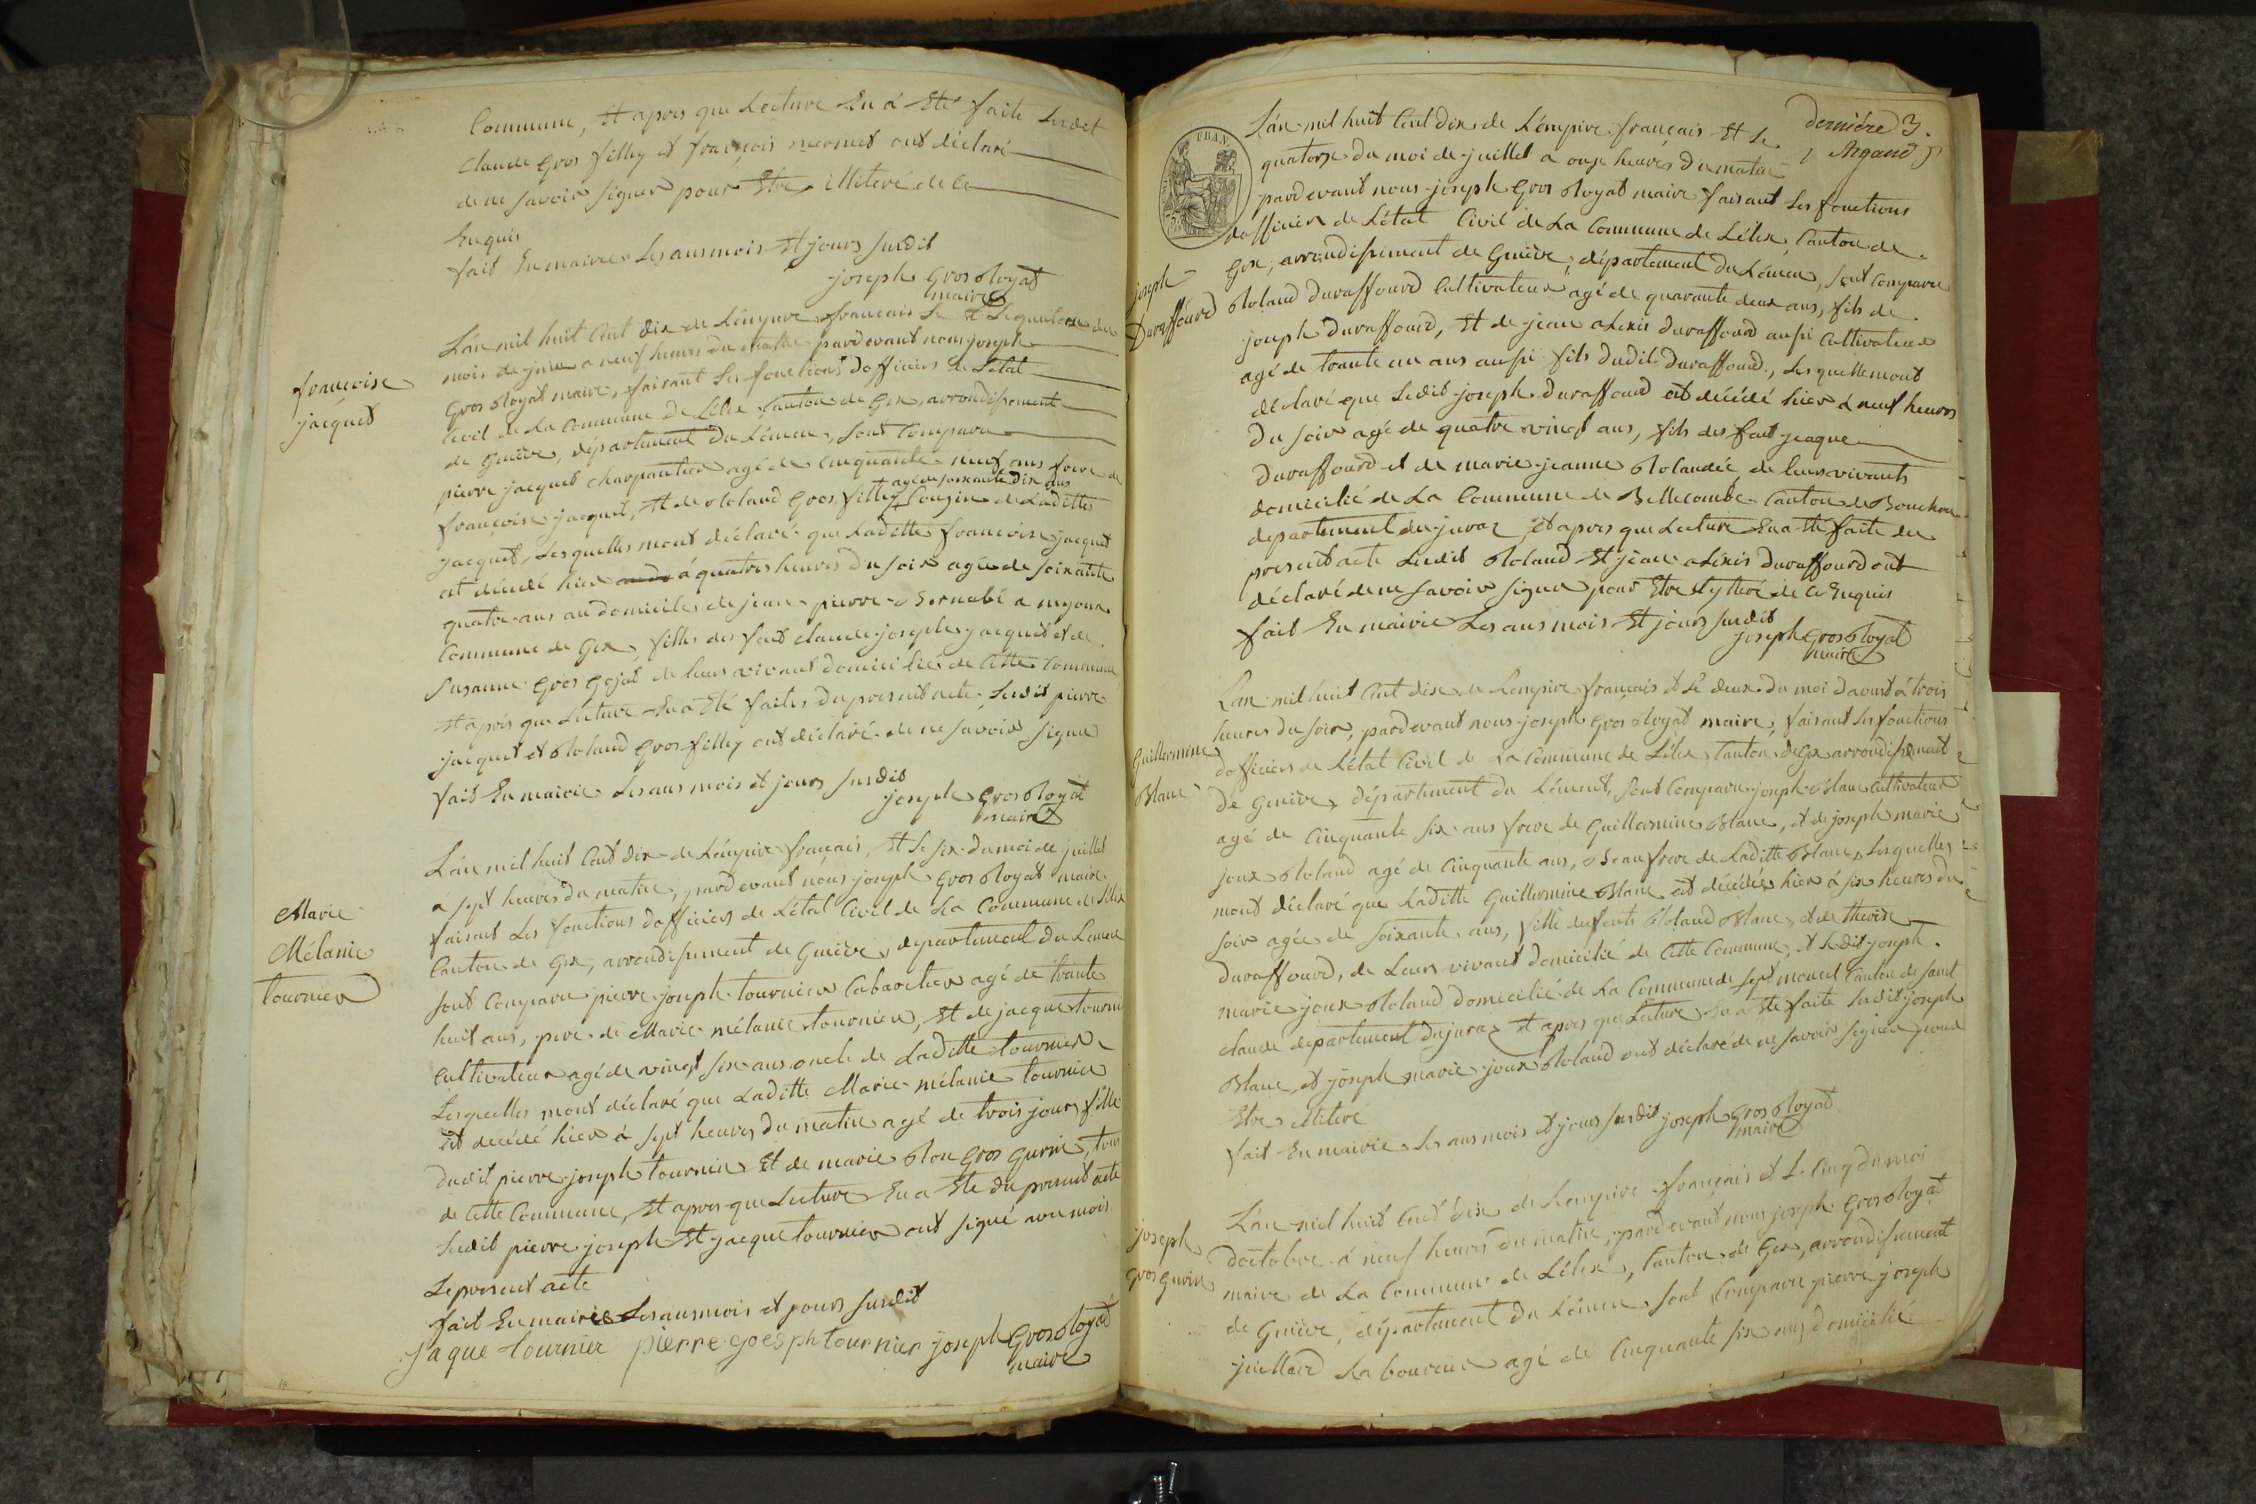 Commune, Et apres que Lecture En à Eté faite Ledit
Claude Gros filley et françois mermet ont déclaré
de ne savoir signer pour Etre illiteré de ce
Enquis
fait En mairie Les ans mois Et jours Susdit
joseph Gros Royat
maire
françoise
jacquet
L'an mil huit Cent dix de L'émpire français Et Le quatorse du
mois de juin a neuf heures du matin pardevant nous joseph
Gros Royat maire, faisant Les fonctions d'officiers de L'état
Civil de La Commune de Lélex Canton de Gex, arrondissement
de Genève, département du Léman, Sont Comparu
pierre jacquet charpantier agé de Cinquante neuf ans frere de
françoise jacquet, Et de Roland Gros filley + Cousin de Laditte
agé de soixante Dix ans
jacquet, Lesquelles mont déclaré que Laditte françoise jacquet
est décédé hier à quatres heures du soir agée de soixante
quatre ans au domiciles de jean pierre Bernabé a
Commune de Gex, filles des feut claude joseph jacquet et de
Susanne Gros Gojat de leurs vivant domiciliés de Cette Commune
Et aprés que Lecture En a Eté faites du present acte Ledit pierre
jacquet et Roland Gros filley ont déclaré de ne savoir signer
fait En mairie Les ans mois et jours Susdit
joseph Gros Royat
maire
Marie
Mélanie
tournier
L'an mil huit Cent dix de L'émpire français, Et Le six du moi de juillet
a sept heures du matin, pardevant nous joseph Gros Royat maire
faisant Les fonctions d'officiers de L'état Civil de La Commune de Lélex
Canton de Gex, arrondissement de Genève, departement du Leman
sont Comparu pierre joseph tournier Cabaretier agé de trante
huit ans, pere de Marie mélanie tournier, Et de jacque tournier
Cultivateur agé de vingt six ans oncle de Laditte tournier
Lesquelles mont déclaré que Laditte Marie mélanie tournier
est decédé hier à sept heures du matin agé de trois jours fille
dudit pierre joseph tournier Et de marie Gros Gurin, tous
de Cette Commune, Et apres que Lecture En a Eté du present acte
Ledit pierre joseph Et jacque tournier ont signé avec mois
Le present acte
fait En mairie Les ans mois et jours susdit
jaque tournier pierre joesph tournier joseph Gros Royat
maire
derniére 3.
Argand
FRAN.
joseph
Duraffourd
L'an mil huit Cent dix de L'émpire français Et Le
quatorze du moi de juillet a onze heures du matin
pardevant nous joseph Gros Royat maire faisant Les fonctions
d'officier de L'état Civil de La Commune de Lélex, Canton de
Gex, arrondissement de Genève, département du Léman, sont Comparu
Roland Duraffourd Cultivateur agé de quarante deux ans, fils de
joseph duraffourd, Et de jean alexis duraffourd aussi Cultivateur
agé de trante un ans aussi fils dudit Duraffourd, Lesquelle mont
déclaré que Ledit joseph duraffourd est décédé hier à neuf heures
du soir agé de quatre vingt ans, fils des feut jacque
duraffourd et de marie jeanne Rolandée, de leurs vivants
domicilié de La Commune de Bellecombe Canton de Bouchoux
departement du juraz, Et apres que Lecture En a Eté faite du
present acte Ledit Roland Et jean alexis duraffourd ont
déclaré de ne savoir signer pour Etre Illyteré de ce Enquis
fait En mairie Les ans mois Et jours susdit
joseph Gros Royat
maire
Guillermine
Blanc
L'an mil huit Cent dix de L'empire français et Le deux du moi d'aout à trois
heures du soir, pardevant nous joseph Gros Royat maire, faisant Les fonctions
d'officiers de L'état Civil de La Commune de Lélex Canton de Gex arrondissement
De Genève, département du Lément, sont Comparu joseph Blanc Cultivateur
agé de Cinquante six ans frere de Guillermine Blanc, et de joseph marie
joux Roland agé de Cinquante ans, Beaufrere de Laditte Blanc, Lesquelles
mont déclaré que Laditte Guillermine Blanc est décédée hier à six heures du
soir agée de soixante ans, fille des feuts Roland Blanc, et de therèse
duraffourd, de Leurs vivant domicilié de Cette Commune, et Ledit joseph
marie joux Roland domicilié de La Commune de sept moncel Canton de saint
claude departement du juraz Et apres que Lecture En a Eté faite Ledit joseph
Blanc, et joseph marie joux Roland ont déclaré de ne savoir signer pour
Etre illiteré
fait En mairie Les ans mois et jours Susdit joseph Gros Royat
maire
joseph
Gros Gurin
L'an mil huit Cent dix de L'empire français et Le Cinq du moi
d'octobre à neuf heures du matin, pardevant nous joseph Gros Royat
maire de La Commune de Lélex, Canton de Gex, arrondissement
de Genève, département du Léman sont Comparu pierre joseph
juillard Laboureur agé de Cinquante six ans domicilié